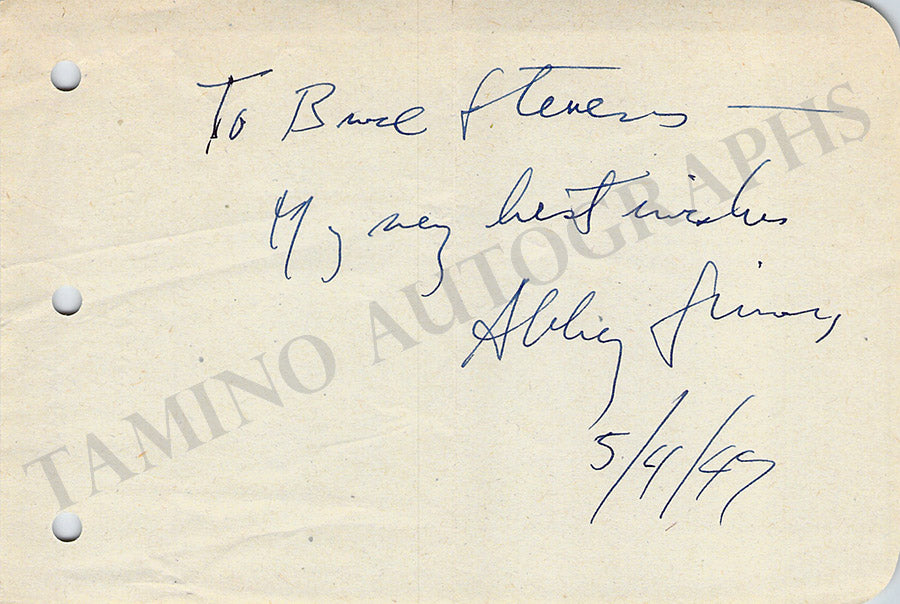 To Bruce Stevens —
My very best wishes
Abbey Simon
5/4/47
TAMINO AUTOGRAPHS